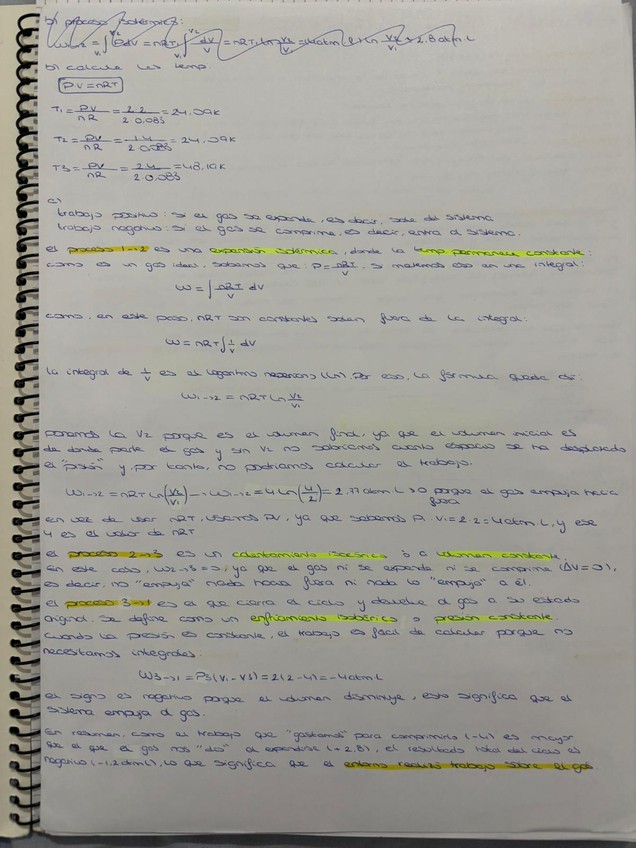 b) proceso isotérmico:
W1→2 = ∫ PdV = nRT₁ ∫ dV/V = nRT₁ ln V2/V1 = 4 atm·l · ln V2/V1 ≈ 2.8 atm·L
b) calcule las temp
PV=nRT
T1 = PV/nR = 2·2/2·0.083 = 24,09K
T2 = PV/nR = 1·4/2·0.083 = 24,09K
T3 = PV/nR = 2·4/2·0.083 = 48,19K
c)
trabajo positivo: si el gas se expande, es decir, sale del sistema
trabajo negativo: si el gas se comprime, es decir, entra al sistema.
el proceso 1→2 es una expansión isotérmica, donde la temp permanece constante:
como es un gas ideal, sabemos que: P = nRT/V, si metemos eso en una integral:
W = ∫ nRT/V dV
como, en este paso, nRT son constantes salen fuera de la integral:
W = nRT ∫ 1/V dV
la integral de 1/V es el logaritmo neperiano (ln). Por eso, la fórmula queda así:
W1→2 = nRT ln V2/V1
ponemos la V2 porque es el volumen final, ya que el volumen inicial es
de donde parte el gas y sin V2 no sabríamos cuanto espacio se ha desplazado
el "pistón" y, por tanto, no podríamos calcular el trabajo.
W1→2 = nRT ln(V2/V1) → W1→2 = 4 ln(4/2) = 2.77 atm L >0 porque el gas empuja hacia
fuera
en vez de usar nRT, usamos PV, ya que sabemos P1·V1=2·2=4atm L, y ese
4 es el valor de nRT
el proceso 2→3 es un calentamiento isocórico o a volumen constante.
en este caso, W2→3=0, ya que el gas ni se expande ni se comprime (ΔV=0),
es decir, no "empuja" nada hacia fuera ni nada lo "empuja" a él.
el proceso 3→1 es el que cierra el ciclo y devuelve al gas a su estado
original. Se define como un enfriamiento isobárico, o presión constante.
Cuando la presión es constante, el trabajo es fácil de calcular porque no
necesitamos integrales:
W3→1 = P3(V1-V3) = 2(2-4) = -4atm L
el signo es negativo porque el volumen disminuye, esto significa que el
sistema empuja al gas.
en resumen, como el trabajo que "gastamos" para comprimirlo (-4) es mayor
que el que el gas nos "dio" al expandirse (+2,8), el resultado total del ciclo es
negativo (-1,2atm L), lo que significa que el entorno realizó trabajo sobre el gas.